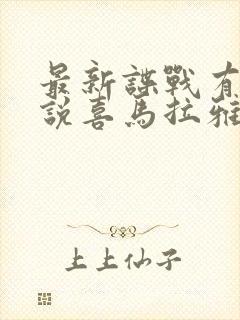 最新諜戰有
說喜馬拉雅
上上仙子